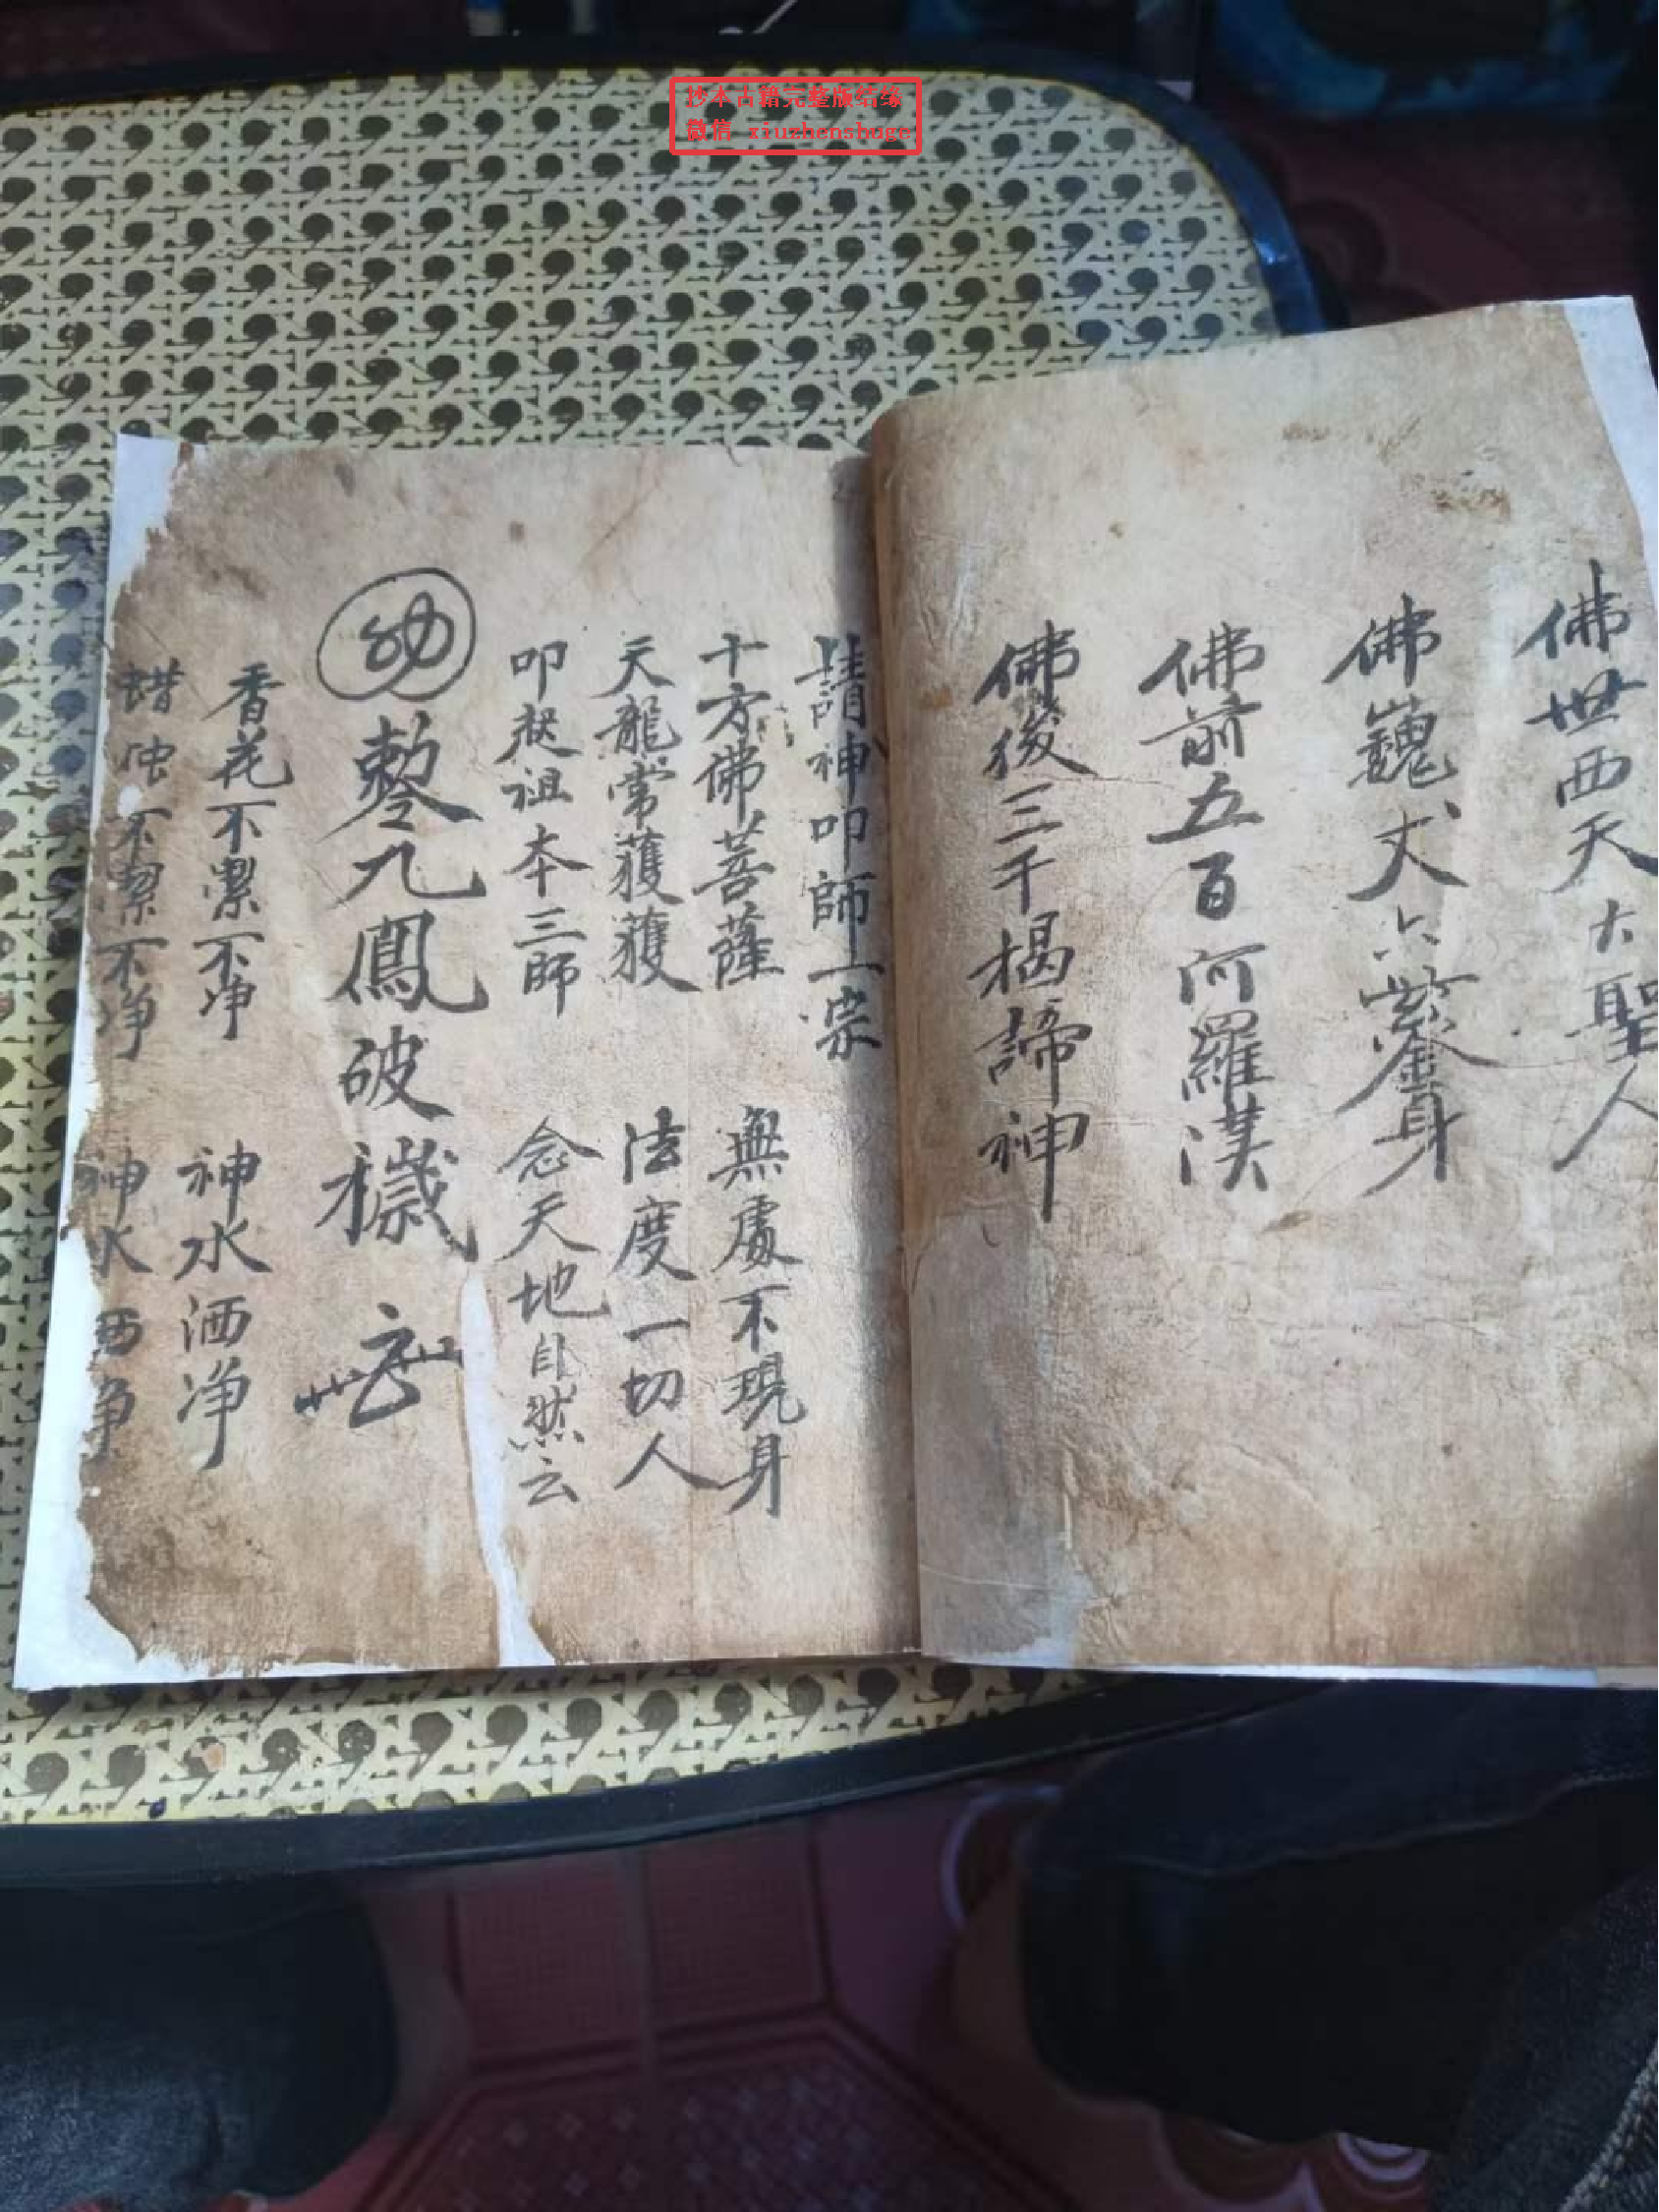 抄本古籍完整版结缘
微信 xiuzhenshuge
佛世西天大聖人
佛巍丈六紫金身
佛前五百阿羅漢
佛後三千揭諦神
請神叩師一宗
十方佛菩薩 無處不現身
天龍常獲獲 法度一切人
叩祖本三師 念天地自然云
九鳳破穢
香花不潔不净 神水洒净
不潔不净 神水洒净